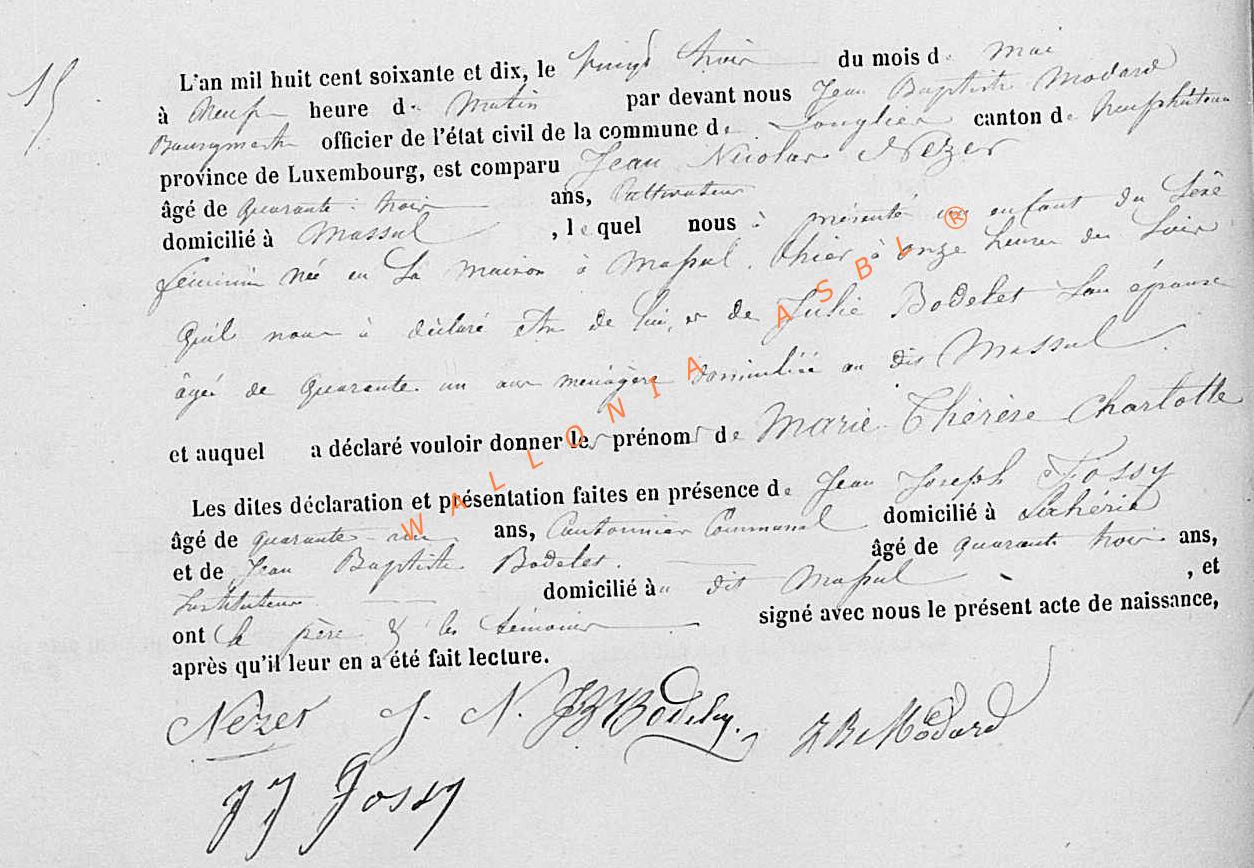 15
L'an mil huit cent soixante et dix, le vingt trois du mois de mai
à Neuf heure du Matin par devant nous Jean Baptiste Modard
Bourgmestre officier de l'état civil de la commune de Longlier canton de Neufchâteau
province de Luxembourg, est comparu Jean Nicolas Nezer
âgé de quarante trois ans, Cultivateur
domicilié à Massul , lequel nous à présenté un enfant du Sexe
féminin née en Sa maison à Massul, hier à onze heures du Soir
qu'il nous à déclaré être de lui, et de Julie Bodelet Son épouse
âgée de quarante un ans menagère domiciliée au dit Massul.
et auquel a déclaré vouloir donner les prénoms de Marie Thérèse Charlotte
Les dites déclaration et présentation faites en présence de Jean Joseph Fossy
âgé de quarante ans, Cantonnier Communal domicilié à Lahérie
et de Jean Baptiste Bodelet. âgé de quarante trois ans,
Instituteur domicilié au dit Massul , et
ont le père & les témoins signé avec nous le présent acte de naissance,
après qu'il leur en a été fait lecture.
Nezer J. N. JB Bodelet. J B Modard
J J Fossy
WALLONIA ASBL ®